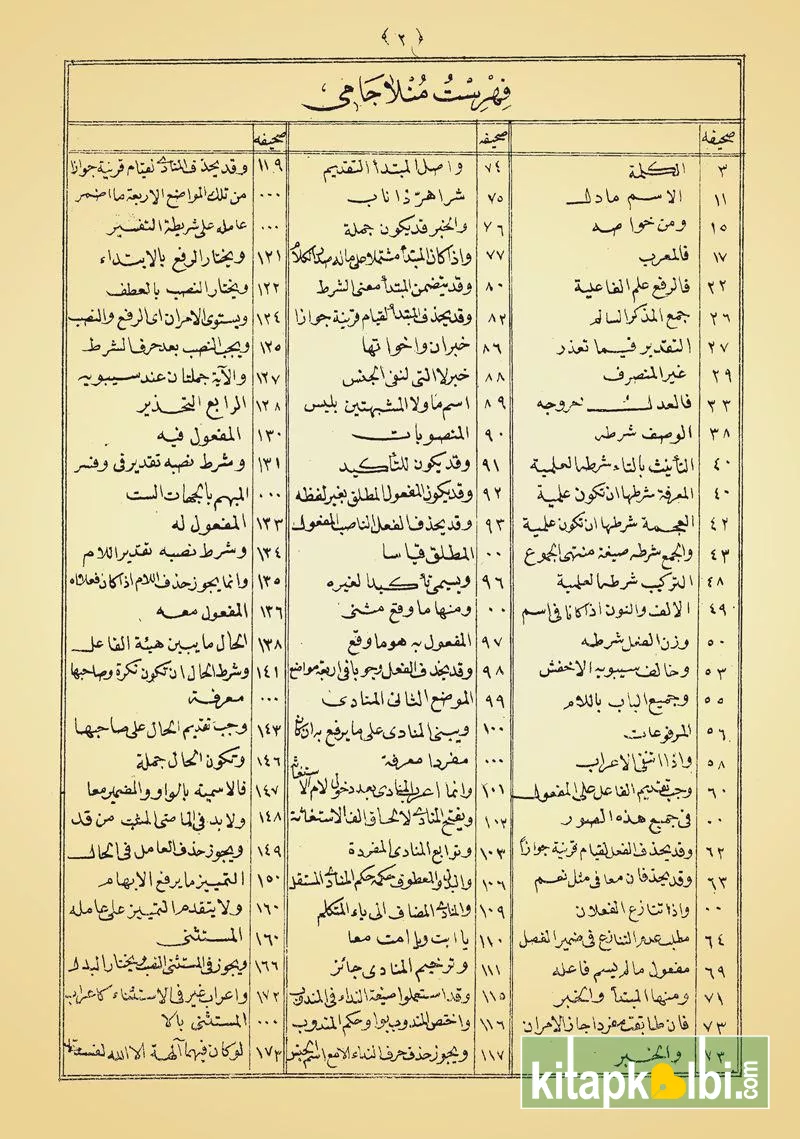 ﴿ ٢ ﴾
فهرست منلا جامى
صحيفه
٣ الكلمة
١١ الاسم مادل
١٥ ومن خواصه
١٧ فالمعرب
٢٢ فالرفع علم الفاعلية
٢٦ جمع المذكر السالم
٢٧ التقدير فيما تعذر
٢٩ غير المنصرف
٣٣ فالعدل خروجه
٣٨ الوصف شرطه
٤٠ التأنيث بالتاء شرطه العلمية
٤٠ المعرفة شرطها ان تكون علمية
٤٢ العجمة شرطها ان تكون علمية
٤٣ والجمع شرطه صيغة منتهى الجموع
٤٨ التركيب شرطه العلمية
٤٩ الالف والنون اذا كانا فى اسم
٥٠ وزن الفعل شرطه
٥٣ وخالف سيبويه الاخفش
٥٥ وجميع الباب باللام
٥٦ المرفوعات
٥٨ واذا انتفى الاعراب
٦٠ وجب تقديم الفاعل على المفعول
٠٠ فى جميع هذه الصور
٦٢ وقد يحذف الفعل لقيام قرينة جوازا
٦٣ وقد يحذفان معا فى مثل نعم
٠٠ واذا تنازع الفعلان
٦٤ مطلب عدم التنازع فى ضمير الفصل
٦٩ مفعول مالم يسم فاعله
٧١ ومنها المبتدأ والخبر
٧٣ فان طابقت مفردا جاز الامران
٧٣ والخبر
صحيفه
٧٤ واصل المبتدأ التقديم
٧٥ شر اهر ذا ناب
٧٦ والخبر قد يكون جملة
٧٧ واذا كان المبتدأ مشتملا على ماله صدر الكلام
٨٠ وقد يتضمن المبتدأ معنى الشرط
٨٢ وقد يحذف المبتدأ لقيام قرينة جوازا
٨٦ خبر ان واخواتها
٨٨ خبر لا التى لنفى الجنس
٨٩ اسم ما ولا المشبهتين بليس
٩٠ المنصوبات
٩١ وقد يكون للتأكيد
٩٢ وقد يكون المفعول المطلق بغير لفظه
٩٣ وقد يحذف الفعل الناصب المفعول
٠٠ المطلق قياسا
٩٦ ويسمى تأكيدا لغيره
٠٠ ومنها ما وقع مثنى
٩٧ المفعول به هو ما وقع
٩٨ وقد يحذف الفعل وجوبا فى اربعة مواضع
٩٩ الموضع الثانى المنادى
١٠٠ ويبنى المنادى على ما يرفع به ان كان
٠٠٠ مفردا معرفة
١٠١ وانما اعرب المنادى بعد دخول لام الاستغاثة
١٠٢ ويفتح المنادى لالحاق الف الاستغاثة
١٠٣ وتوابع المنادى المفردة
١٠٦ والبدل والمعطوف حكمه حكم المنادى المستقل
١٠٩ والمنادى المضاف الى ياء المتكلم
١١٠ يا ابت ويا امت معا
١١١ وترخيم المنادى جائز
١١٥ وقد استعملوا صيغة النداء فى المندوب
١١٦ واختص المندوب بوا وحكم المندوب
١١٧ ويجوز حذف حرف النداء الا مع اسم الجنس
صحيفه
١١٩ وقد يحذف المنادى لقيام قرينة جوازا
٠٠٠ من تلك المواضع الاربعة ما اضمر
٠٠٠ عامله على شريطة التفسير
١٢١ ويختار الرفع بالابتداء
١٢٢ ويختار النصب بالعطف
١٢٤ ويستوى الامران اى الرفع والنصب
١٢٥ ويجب النصب بعد حرف الشرط
١٢٧ والآية جملتان عند سيبويه
١٢٨ الرابع التحذير
١٣٠ المفعول فيه
١٣١ وشرط نصبه تقدير فى وفسر
٠٠٠ المبهم بالجهات الست
١٣٣ المفعول له
١٣٤ وشرط نصبه تقدير اللام
١٣٥ وانما يجوز حذف اللام اذا كان فعلا
١٣٦ المفعول معه
١٣٨ الحال ما يبين هيئة الفاعل
١٤١ وشرط الحال ان تكون نكرة وصاحبها
٠٠٠ معرفة
١٤٣ وجب تقديم الحال على صاحبها
١٤٦ وتكون الحال جملة
١٤٧ فالاسمية بالواو والضمير معا
١٤٨ ولا بد فى الماضى المثبت من قد
١٤٩ ويجوز حذف العامل فى الحال
١٥٠ التمييز ما يرفع الابهام
١٦٠ ولا يتقدم التمييز على عامله
١٦٠ المستثنى
١٦٦ ويجوز فى المستثنى النصب ويختار البدل
١٧٢ واعراب غير فى الاستثناء كاعراب
٠٠٠ المستثنى بالا
١٧٣ لو كان فيهما آلهة الا الله لفسدتا
kitapkalbi.com